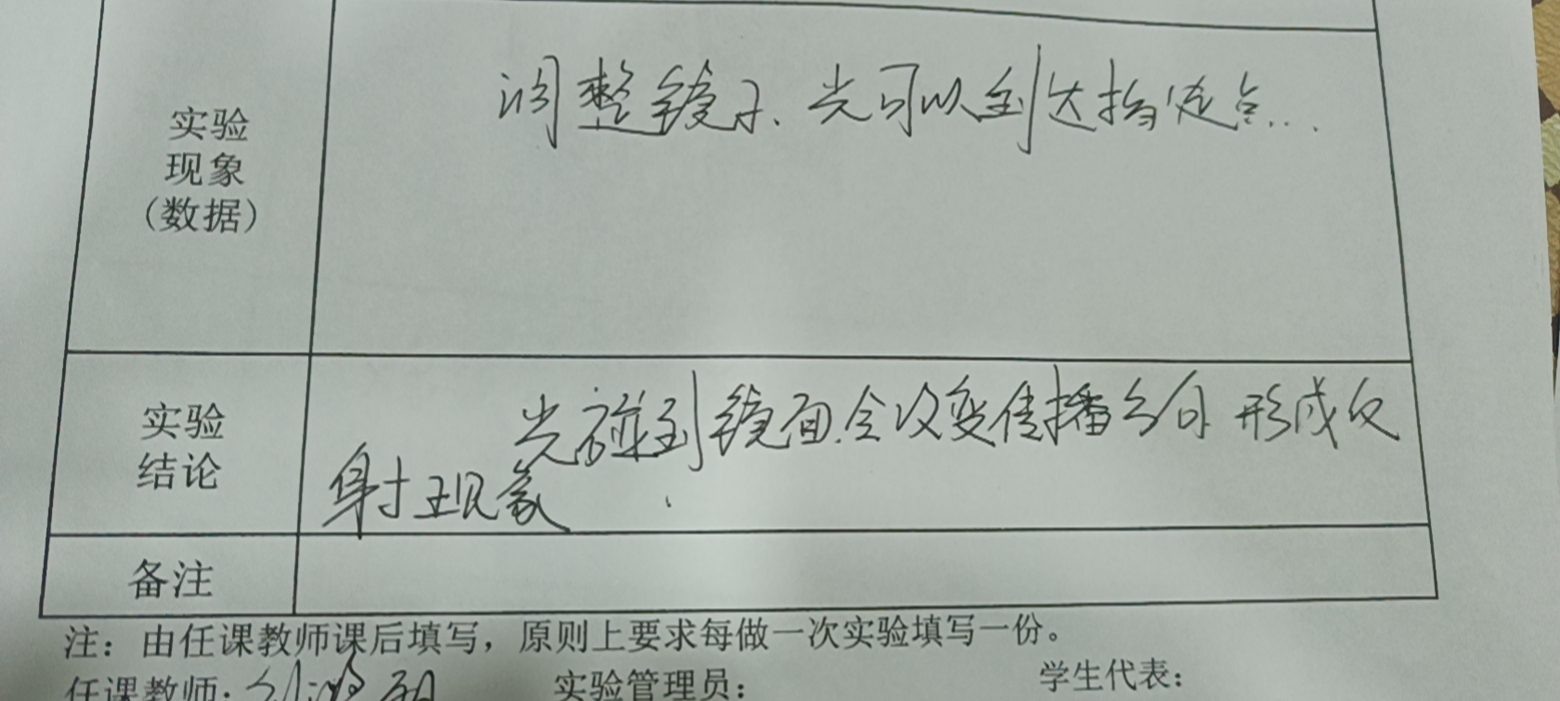 实验
现象
(数据)
调整镜子、光可以到达指定点...
实验
结论
光碰到镜面.会改变传播方向 形成反
射现象
备注
注：由任课教师课后填写，原则上要求每做一次实验填写一份。
任课教师：
实验管理员：
学生代表：